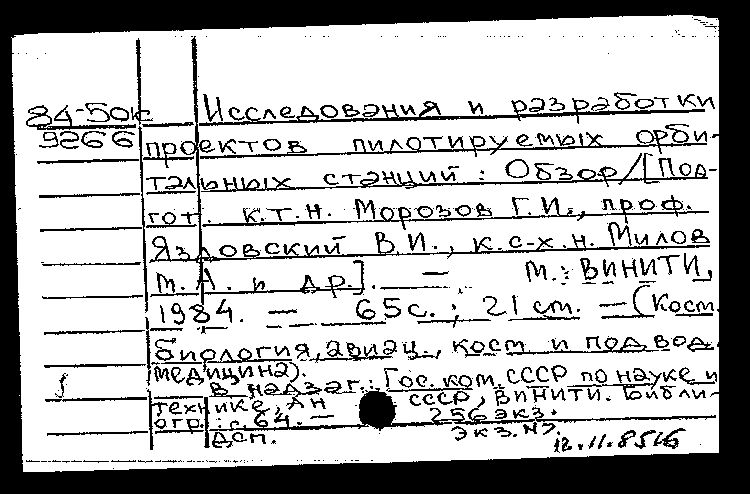 84-50к Исследования и разработки
9266 проектов пилотируемых орби-
тальных станций : Обзор/[Под-
гот. к.т.н. Морозов Г.И., проф.
Яздовский В.И., к.с-х.н. Милов
М.А. и др.]. — М.: ВИНИТИ,
1984. — 65с.; 21 cm. — (Косм.
биология, авиац., косм. и подвод.
медицина).
В надзаг.: Гос. ком. СССР по науке и
технике, АН СССР, ВИНИТИ. Библи-
огр.: с.64. — 256 экз.
ДСП. Экз. №
12.11.85